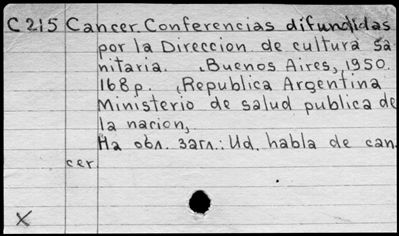 C215 Cancer. Conferencias difundidas
por la Direccion de cultura sa-
nitaria. Buenos Aires, 1950.
168p. (Republica Argentina
Ministerio de salud publica de
la narion,
На обл. загл.: Ud. habla de can
cer.
X